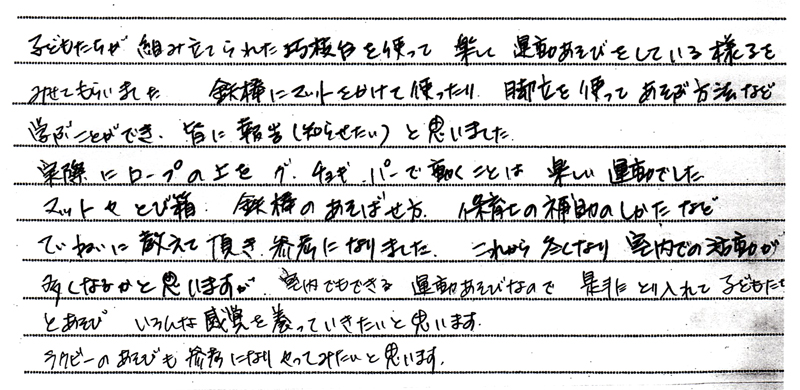 子どもたちが 組み立てられた巧技台を使って 楽しく 運動あそびをしている様子を
みせてもらいました 鉄棒にマットをかけて使ったり、脚立を使って あそぶ方法など
学ぶことができ、皆に報告(知らせたい)と思いました。
実際にロープの上を グ・チョキ・パーで動くことは 楽しい運動でした
マットやとび箱、鉄棒のあそばせ方、保育士の補助のしかたなど
ていねいに教えて頂き、参考になりました。これから冬になり 室内での活動が
多くなるかと思いますが、室内でもできる 運動あそびなので 是非とり入れて 子どもたち
とあそび いろんな感覚を養っていきたいと思います。
ラグビーのあそびも参考になり やってみたいと思います。